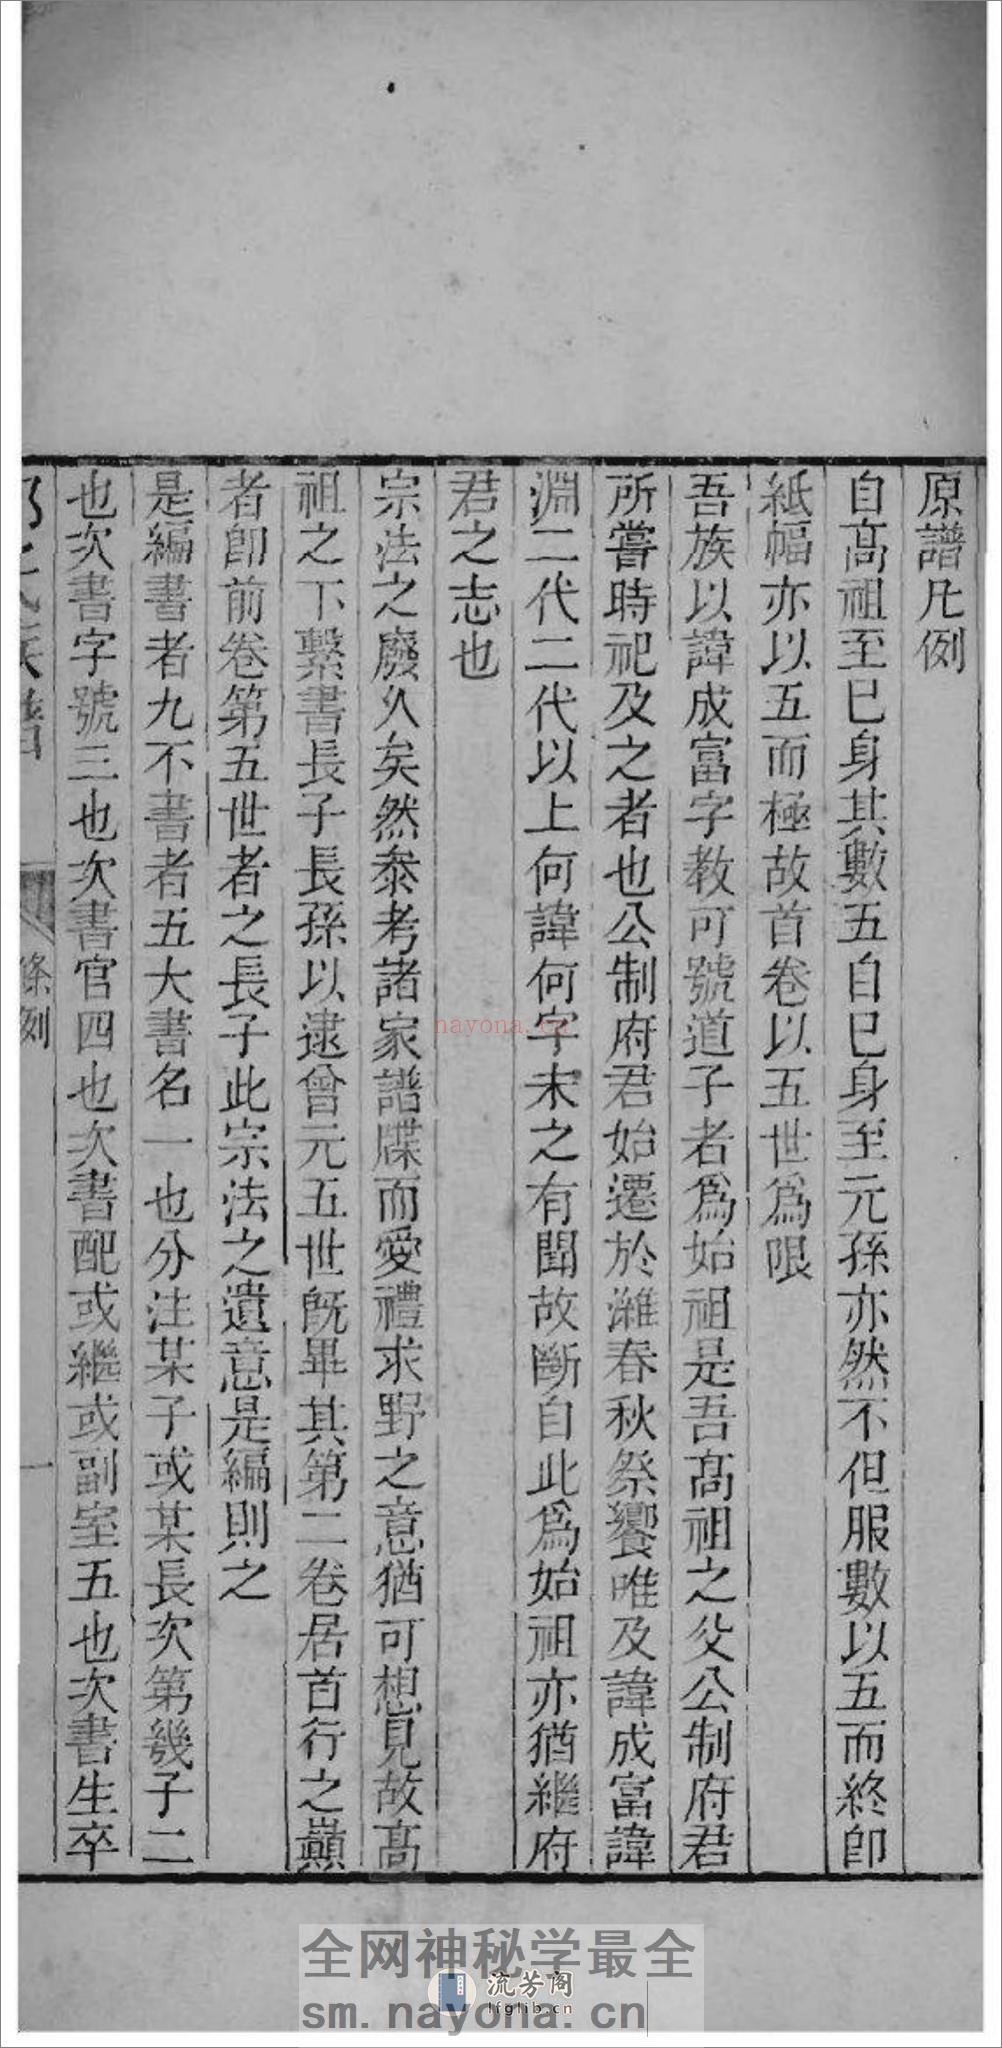 原譜凡例
自高祖至巳身其數五自巳身至元孫亦然不但服數以五而終卽
紙幅亦以五而極故首卷以五世爲限
吾族以諱成富字教可號道子者爲始祖是吾高祖之父公制府君
所嘗時祀及之者也公制府君始遷於濰春秋祭饗唯及諱成富諱
淵二代二代以上何諱何字未之有聞故斷自此爲始祖亦猶繼府
君之志也
宗法之廢久矣然叅考諸家譜牒而愛禮求野之意猶可想見故高
祖之下繫書長子長孫以逮曾元五世旣畢其第二卷居首行之巔
者卽前卷第五世者之長子此宗法之遺意是編則之
是編書者九不書者五大書名一也分注某子或某長次第幾子二
也次書字號三也次書官四也次書配或繼或副室五也次書生卒
氏族譜
條例
一
nayona.cn
全网神秘学最全
流芳阁
lfglib.cn
sm.nayona.cn